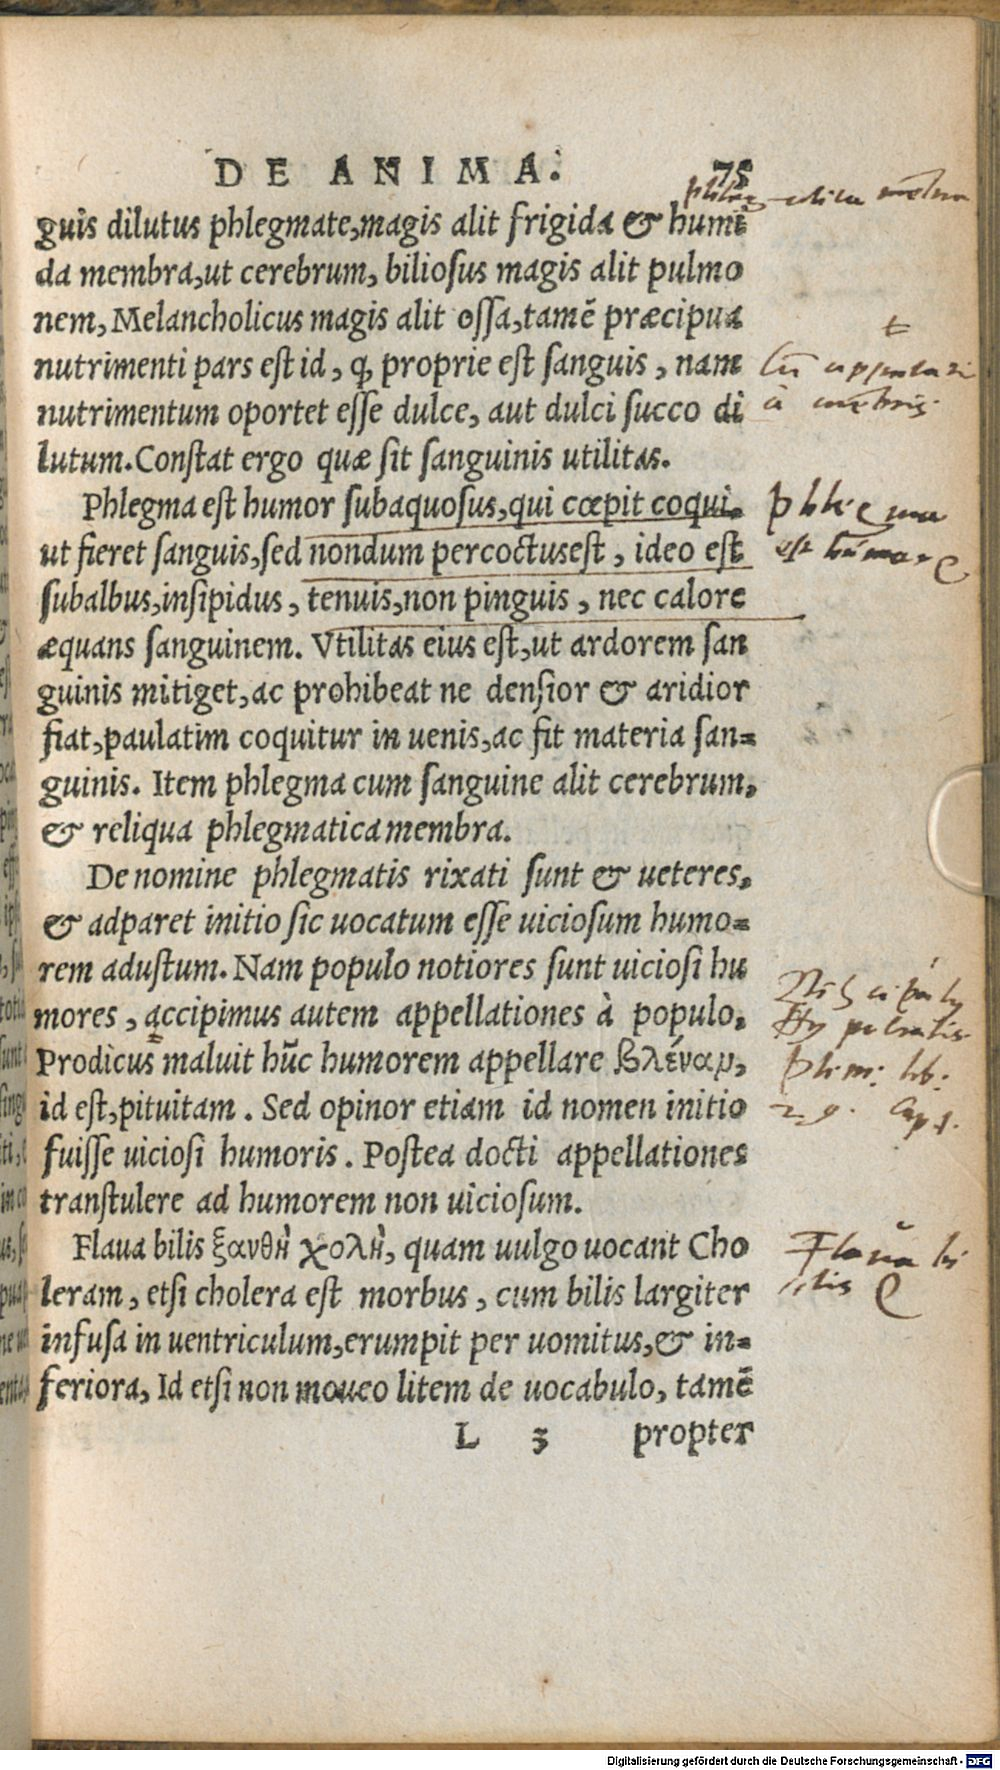 DE ANIMA. 75
guis dilutus phlegmate, magis alit frigida & humi
da membra, ut cerebrum, biliosus magis alit pulmo
nem, Melancholicus magis alit ossa, tamē præcipua
nutrimenti pars est id, ꝙ proprie est sanguis, nam
nutrimentum oportet esse dulce, aut dulci succo di
lutum. Constat ergo quæ sit sanguinis utilitas.
Phlegma est humor subaquosus, qui cœpit coqui,
ut fieret sanguis, sed nondum percoctus est, ideo est
subalbus, insipidus, tenuis, non pinguis, nec calore
æquans sanguinem. Vtilitas eius est, ut ardorem san
guinis mitiget, ac prohibeat ne densior & aridior
fiat, paulatim coquitur in uenis, ac fit materia san=
guinis. Item phlegma cum sanguine alit cerebrum,
& reliqua phlegmatica membra.
De nomine phlegmatis rixati sunt & ueteres,
& adparet initio sic uocatum esse uiciosum humo=
rem adustum. Nam populo notiores sunt uiciosi hu
mores, accipimus autem appellationes à populo,
Prodicus maluit hūc humorem appellare βλέναν,
id est, pituitam. Sed opinor etiam id nomen initio
fuisse uiciosi humoris. Postea docti appellationes
transtulere ad humorem non uiciosum.
Flaua bilis ξανθὴ χολὴ, quam uulgo uocant Cho
leram, etsi cholera est morbus, cum bilis largiter
infusa in uentriculum, erumpit per uomitus, & in=
feriora, Id etsi non moueo litem de uocabulo, tamē
L 3 propter
Phlegma
est
lib:
29. Cap 1.
Flaua bi
ilis
Digitalisierung gefördert durch die Deutsche Forschungsgemeinschaft - DFG